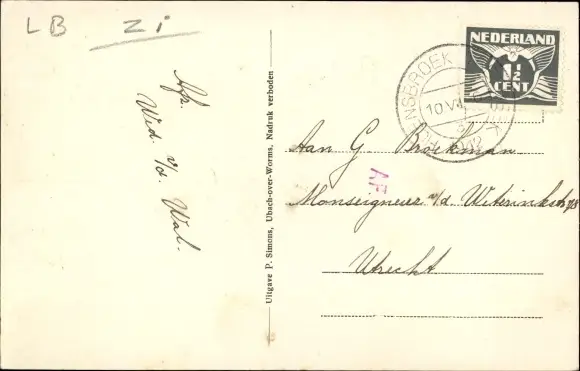 LB
Zi
Afz.
Wed. v/d. Wal.
Uitgave P. Simons, Ubach-over-Worms, Nadruk verboden
NEDERLAND
1½
CENT
10 VI
Aan G. Broekman
Monseigneur v/d. Weteringstr
Utrecht